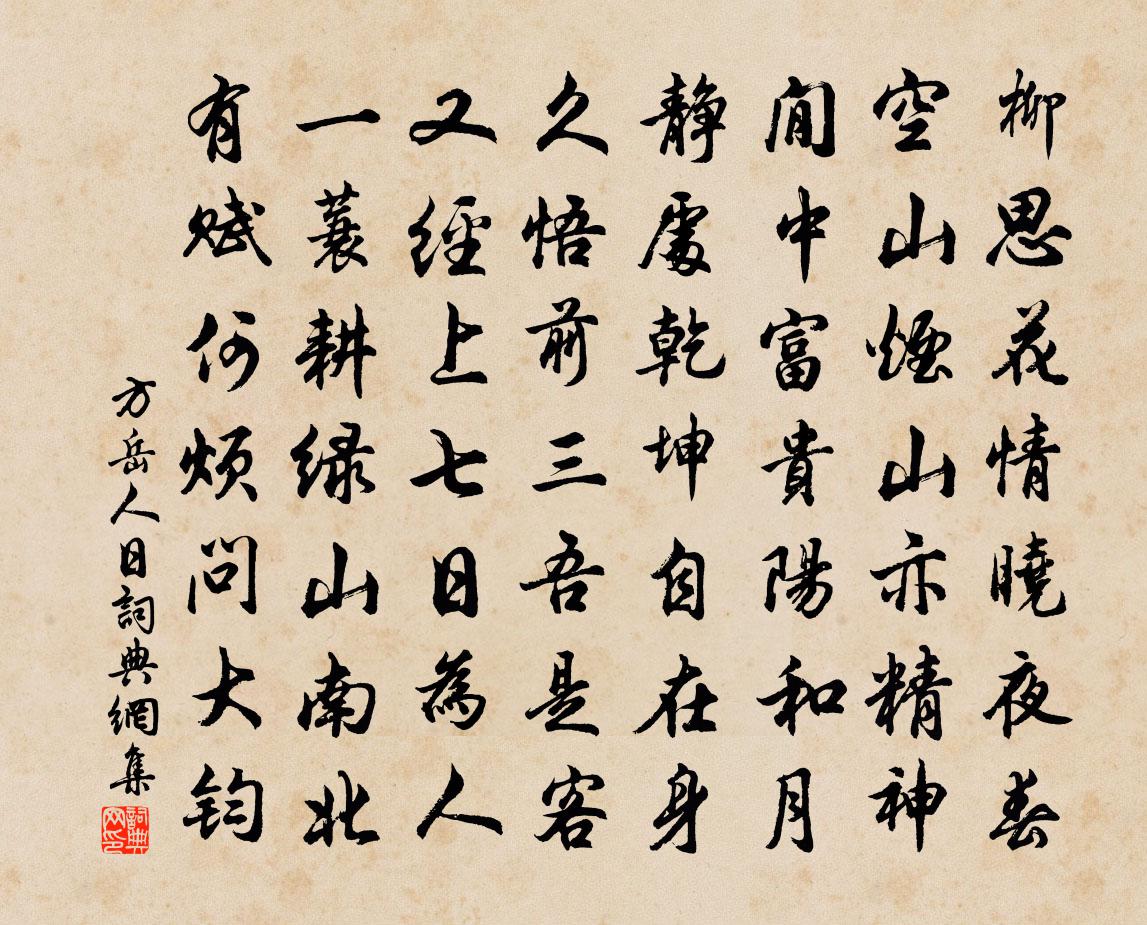 柳思花情曉夜春
空山煙山亦精神
閒中富貴陽和月
靜處乾坤自在身
久悟前三吾是客
又經上七日為人
一蓑耕綠山南北
有賦何煩問大鈞
方岳人日詞典網集
詞典网印